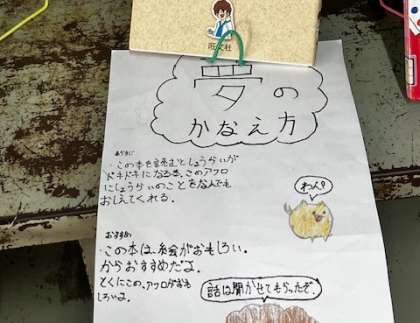 旺文社
夢の
かなえ方
あらすじ
・この本を読むとしょうらいが
ドキドキになる本、このアフロ
にしょうらいのことをなんでも
おしえてくれる。
わん?
おすすめ
・この本は、絵がおもしろい。
からおすすめだよ。
とくにこの、アフロがおも
しろいよ。
話は聞かせてもらったぞ.